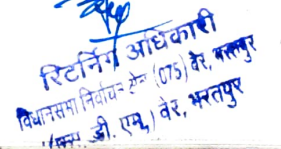 रिटर्निंग अधिकारी
विधानसभा निर्वाचन क्षेत्र (075) वैर, भरतपुर
डी. एम.) वैर, भरतपुर